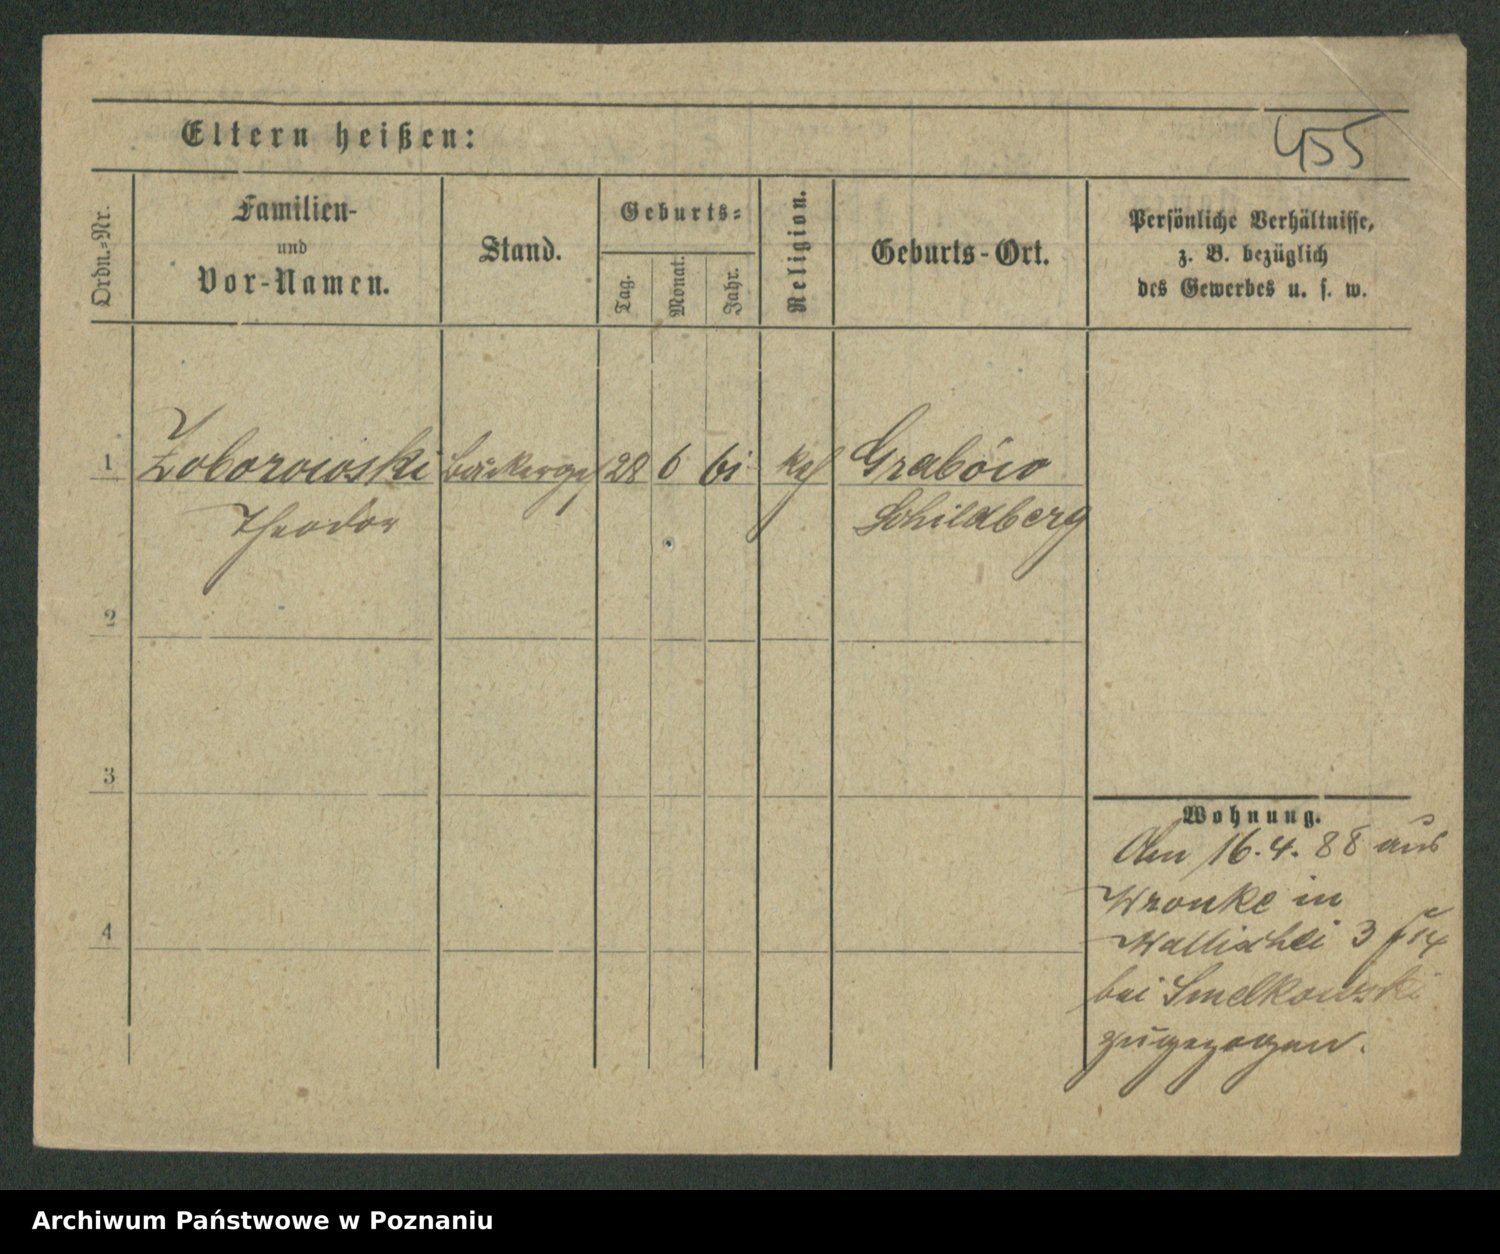 455
Eltern heißen:
Ordn.-Nr.
Familien-
und
Vor-Namen.
Stand.
Geburts-
Tag.
Monat.
Jahr.
Religion.
Geburts-Ort.
Persönliche Verhältnisse,
z. B. bezüglich
des Gewerbes u. s. w.
1 Zoborowski Bäckerges 28 6 61 kath Grabów
Theodor Schildberg
2
3
4
Wohnung.
Am 16. 4. 88 aus
Wronke in
Wallischei 3
bei Smelkowski
zugezogen.
Archiwum Państwowe w Poznaniu